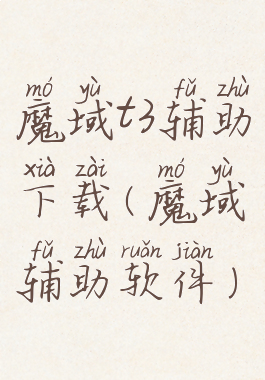 mó yù fǔ zhù
魔域t3辅助
xià zài mó yù
下载(魔域
fǔ zhù ruǎn jiàn
辅助软件)